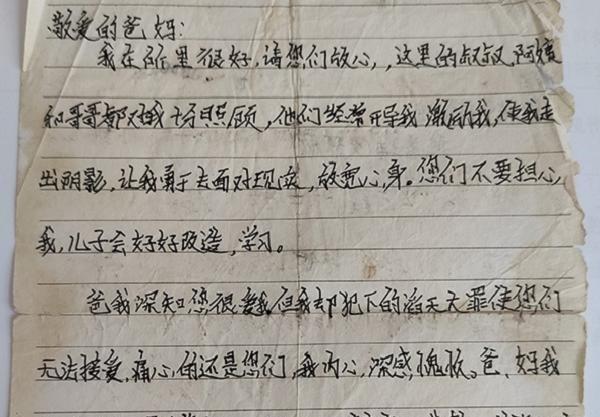 敬爱的爸妈:
我在所里很好,请您们放心,,这里的叔叔,阿姨
和哥哥都对我十分照顾,他们经常开导我激励我,使我走
出阴影,让我勇于去面对现实,放宽心,身。您们不要担心
我,儿子会好好改造,学习。
爸我深知您很爱我但我却犯下的滔天大罪使您们
无法接爱,痛心,的还是您们,我内心,深感愧疚。爸、妈我